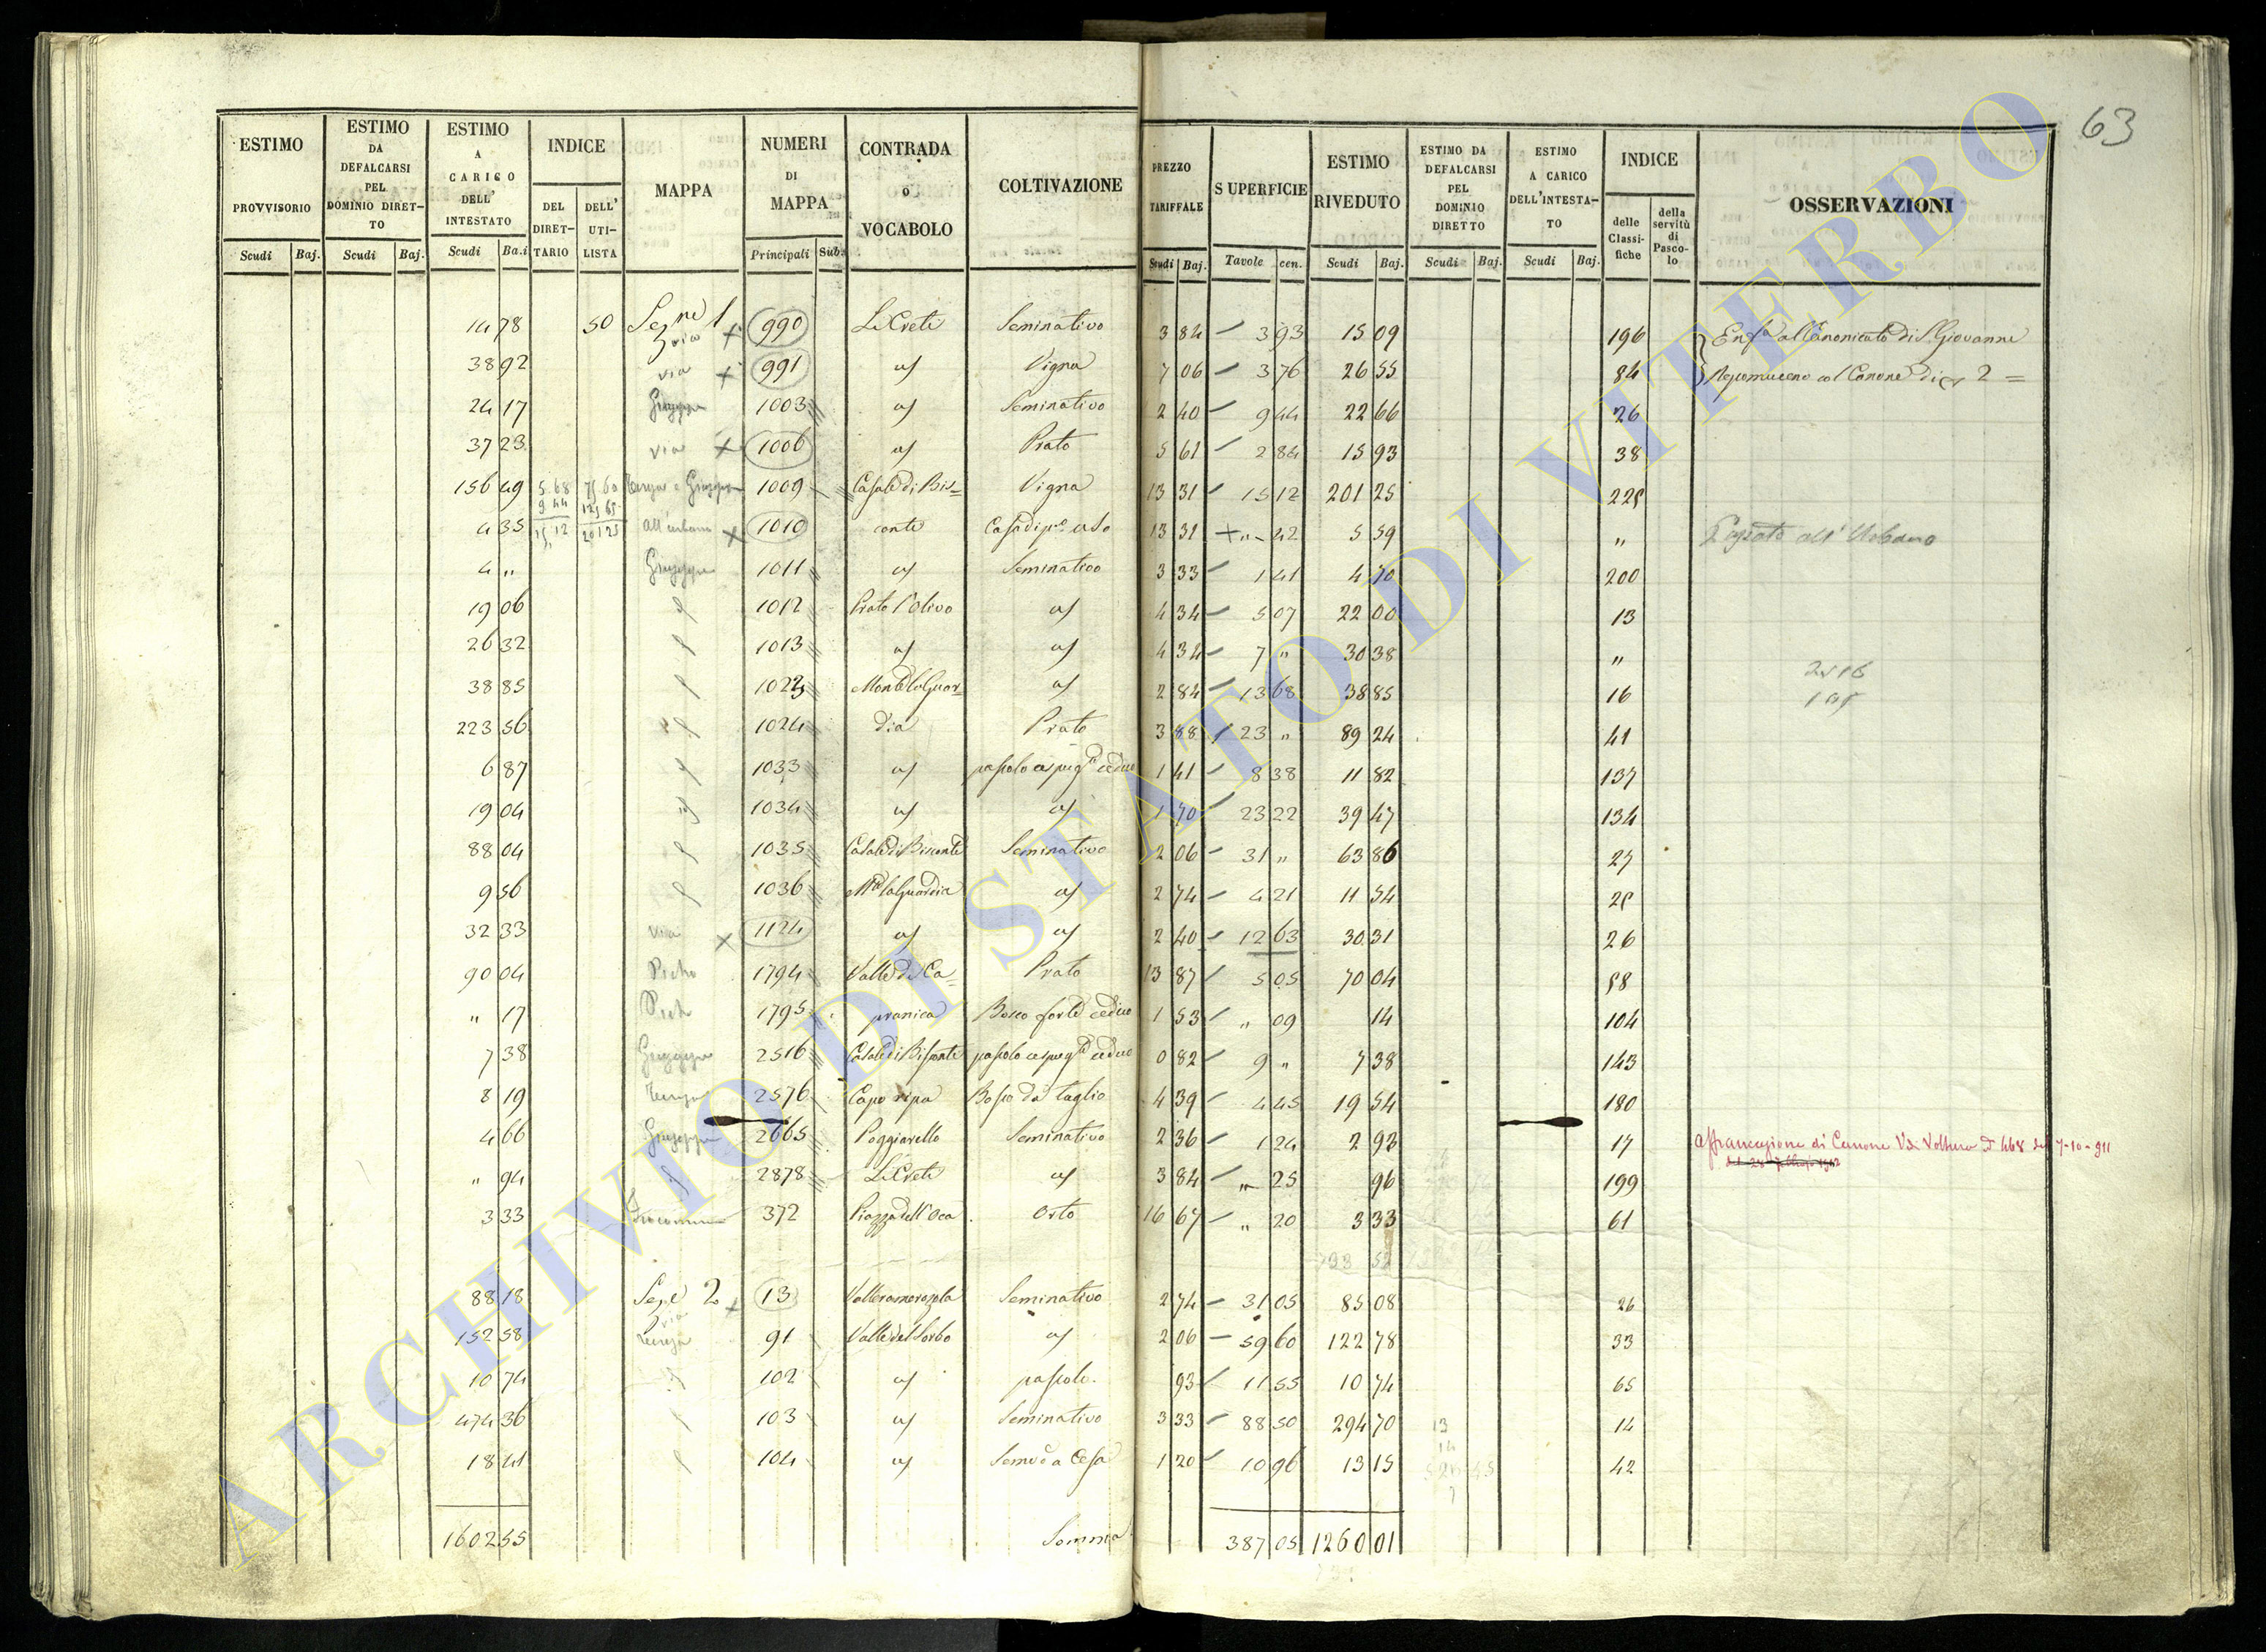 63
ESTIMO PROVVISORIO Scudi Baj.
ESTIMO DA DEFALCARSI PEL DOMINIO DIRET- TO Scudi Baj.
ESTIMO A CARICO DELL' INTESTATO Scudi Ba.i
INDICE DEL DIRET- TARIO DELL' UTI- LISTA
MAPPA
NUMERI DI MAPPA Principali Sub.
CONTRADA o VOCABOLO
COLTIVAZIONE
PREZZO TARIFFALE Scudi Baj.
SUPERFICIE Tavole cen.
ESTIMO RIVEDUTO Scudi Baj.
ESTIMO DA DEFALCARSI PEL DOMINIO DIRETTO Scudi Baj.
ESTIMO A CARICO DELL'INTESTA- TO Scudi Baj.
INDICE delle Classi- fiche della servitù di Pasco- lo
OSSERVAZIONI
14 78 50 Sez.ne 1 via 990 Li Creti Seminativo 3 84 3 93 15 09 196 Enf.a al Canonicato di S. Giovanni
38 92 via 991 Vigna 7 06 3 76 26 55 84 Nepomuceno col Canone di 2 =
24 17 Giuseppe 1003 Seminativo 2 40 9 44 22 66 26
37 23 via 1006 Prato 5 61 2 84 15 93 38
156 49 5.68 75 60 Teresa e Giuseppe 1009 Casale di Bis= Vigna 13 31 15 12 201 25 225
9 44 125 65
4 35 15,12 201 25 all'urbano 1010 conte Casa di pr. uso 13 31 " 42 5 59 " Passato all'Urbano
4 " Giuseppe 1011 Seminativo 3 33 1 41 4 70 200
19 06 1012 Prato l'Olivo 4 34 5 07 22 00 13
26 32 1013 4 34 7 " 30 38 " 2516
38 85 1023 Mon.e la Guar= 2 84 13 68 38 85 16
223 56 1024 dia Prato 3 88 23 " 89 24 41
6 87 1033 pascolo cespug.to ceduo 1 41 8 38 11 82 137
19 04 1034 1 70 23 22 39 47 134
88 04 1035 Casale di Bisconte Seminativo 2 06 31 " 63 86 27
9 56 1036 M.te la Guardia 2 74 4 21 11 54 25
32 33 via 1124 2 40 12 63 30 31 26
90 04 Pietro 1794 Valle di Ca= Prato 13 87 5 05 70 04 58
" 17 Pietro 1795 pranica Bosco forte ceduo 1 53 " 09 14 104
7 38 Giuseppe 2516 Casale di Bisconte pascolo cespug.to ceduo 0 82 9 " 7 38 143
8 19 Teresa 2576 Capo ripa Bosco da taglio 4 39 4 45 19 54 180
4 66 Giuseppe 2665 Poggiarello Seminativo 2 36 1 24 2 93 17 Affrancazione di Canone V.di Voltura N 468 del 7-10-911
" 94 2878 Li Creti 3 84 " 25 96 199
3 33 372 Piazza dell'Oca Orto 16 67 " 20 3 33 61
88 18 Sez.e 2 via 13 Valleramorozola Seminativo 2 74 31 05 85 08 26
152 58 Teresa 91 Valle del Sorbo 2 06 59 60 122 78 33
10 74 102 pascolo 93 11 55 10 74 65
474 36 103 Seminativo 3 33 88 50 294 70 14
18 41 104 Semvo a Cesa 1 20 10 96 13 15 42
1602 55 Somma 387 05 1260 01
ARCHIVIO DI STATO DI VITERBO